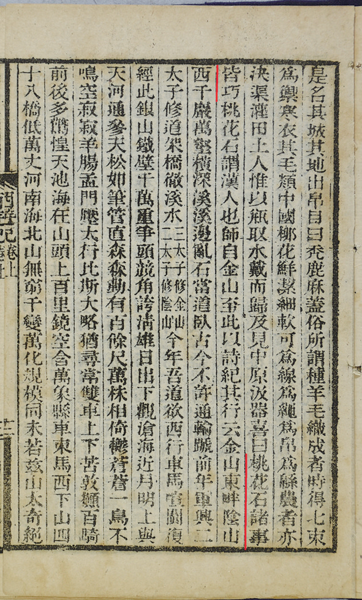 是名其城其地出帛目曰禿鹿麻蓋俗所謂種羊毛織成者時得七束
為禦寒衣其毛類中國柳花鮮潔細軟可為線為繩為帛為綿農者亦
決渠灌田土人惟以瓶取水戴而歸及見中原汲器喜曰桃花石諸事
皆巧桃花石謂漢人也師自金山至此以詩紀其行云金山東畔陰山
西千巖萬壑攢深溪溪邊亂石當道臥古今不許通輪蹄前年軍興二
太子修道架橋徹溪水三太子修金山二太子修陰山今年吾道欲西行車馬喧闐復
經此銀山鐵壁千萬重爭頭競角誇清雄日出下觀滄海近月明上與
天河通參天松如筆管直森森動有百餘尺萬株相倚鬱蒼蒼一鳥不
鳴空寂寂羊腸孟門壓太行比斯大略猶尋常雙車上下苦敦攧百騎
前後多驚惶天池海在山頭上百里鏡空含萬象縣車束馬西下山四
十八橋低萬丈河南海北山無窮千變萬化規模同未若茲山太奇絕
西遊記卷上